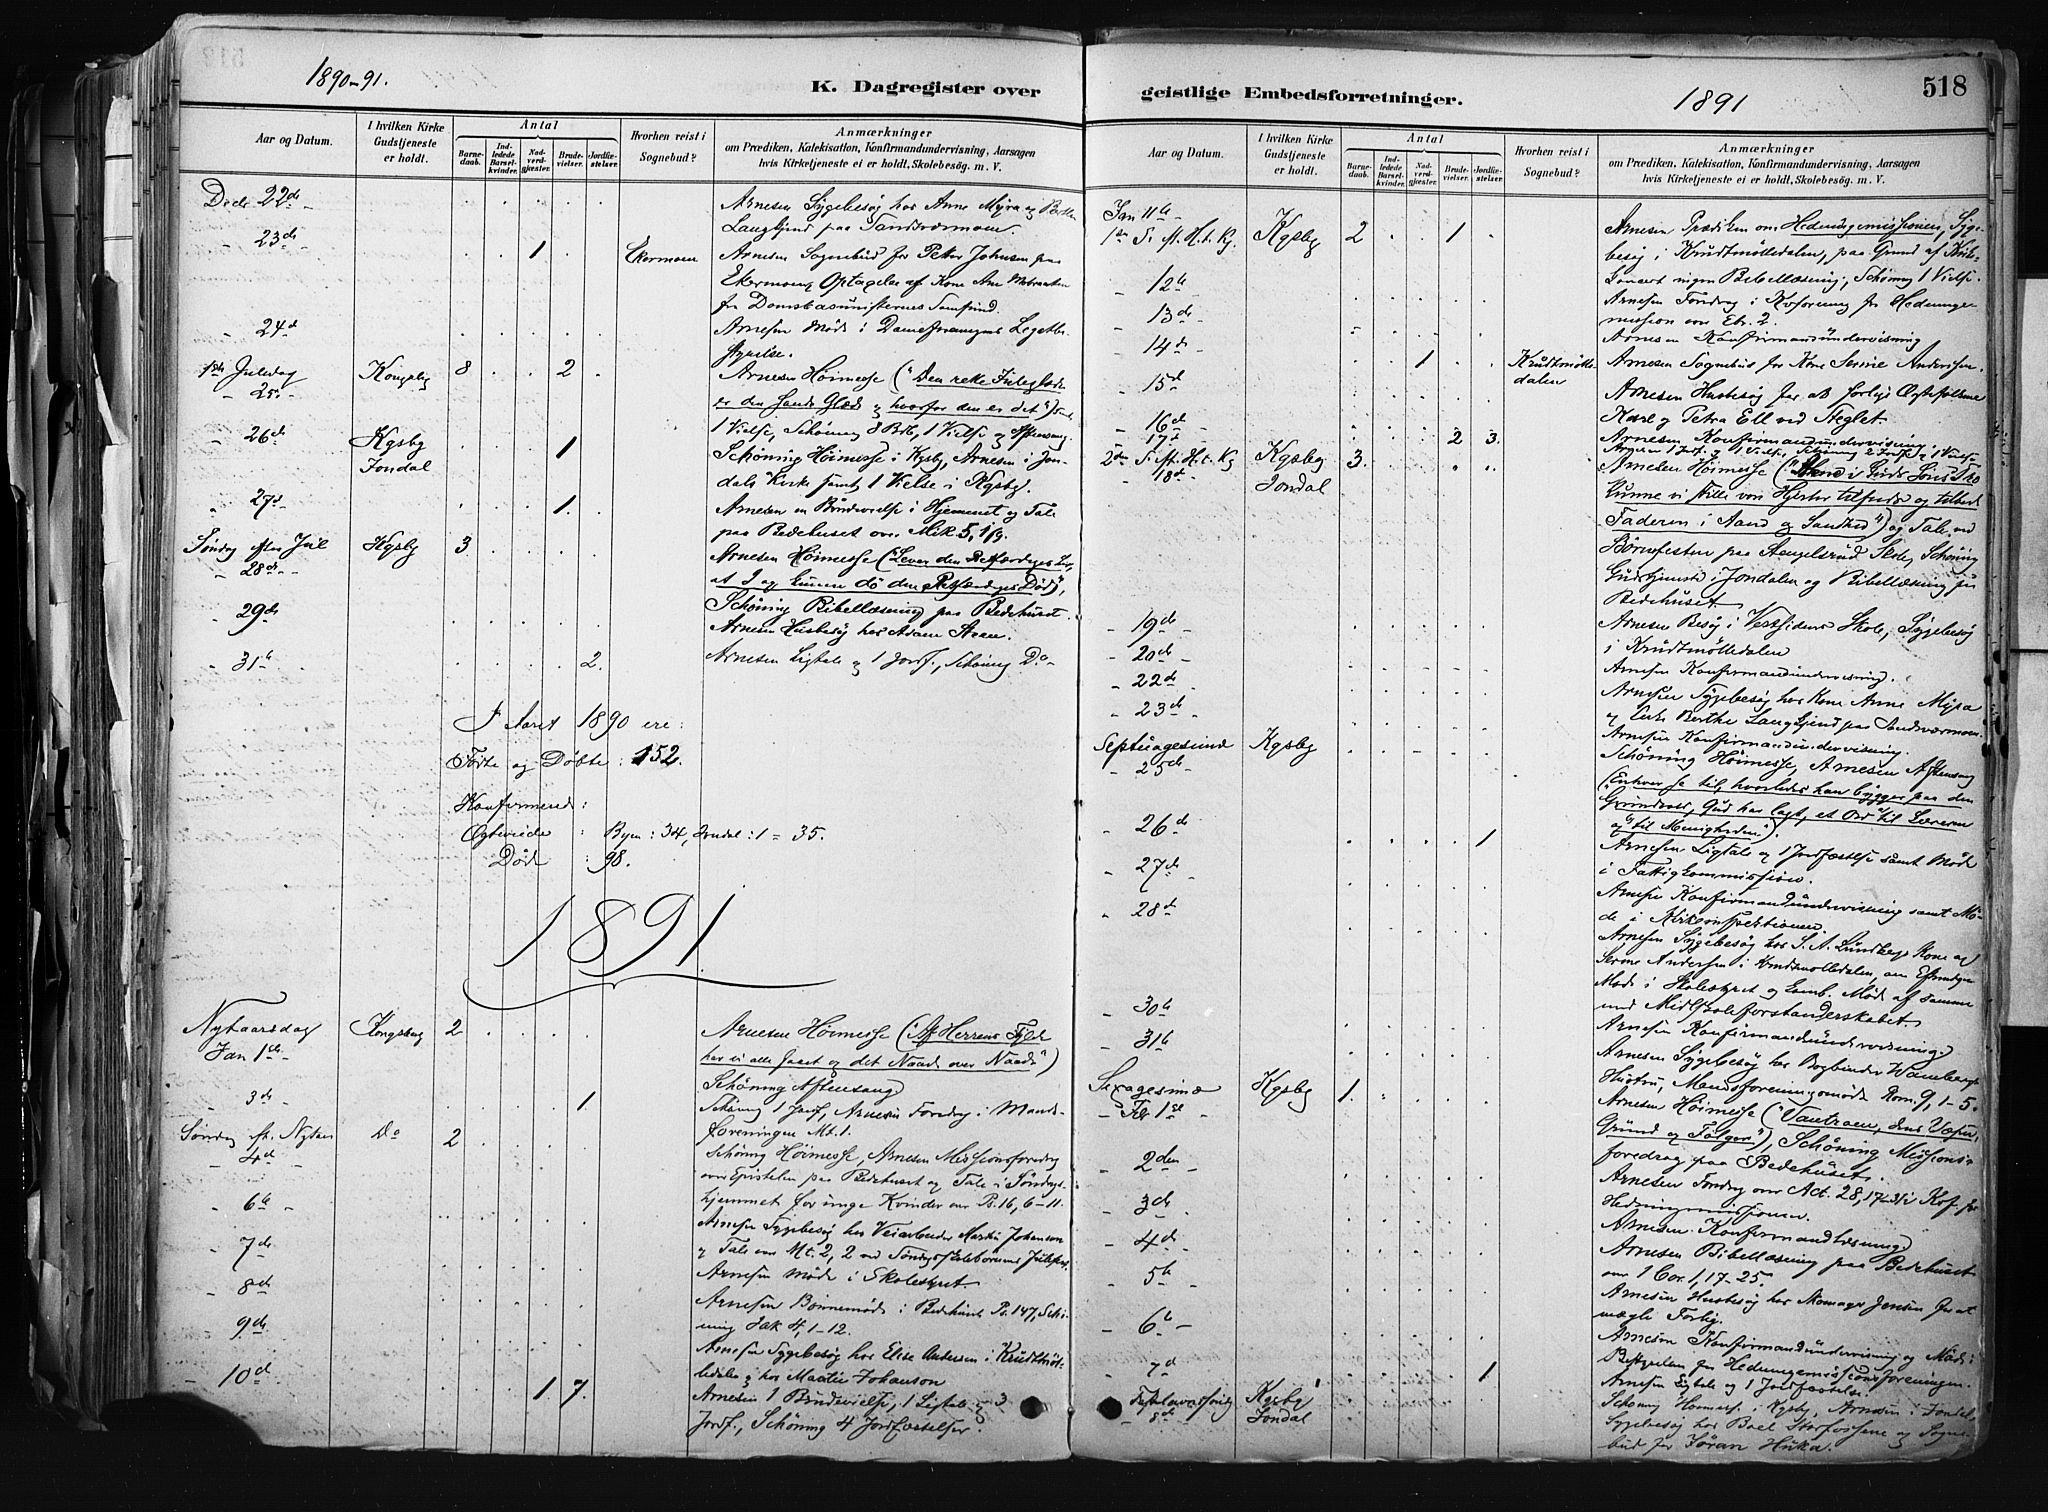 1890-91.
K. Dagregister over
Aar og Datum.
I hvilken Kirke Gudstjeneste er holdt.
Antal
Barnedaab.
Indledede Barselkvinder.
Nadverdgjester.
Brudevielser.
Jordfæstelser.
Hvorhen reist i Sognebud?
Anmærkninger
om Prædiken, Katekisation, Konfirmandundervisning, Aarsagen
hvis Kirketjeneste ei er holdt, Skolebesøg. m. V.
22de
Arnesen Sygebesøg hos Anne Myra og
paa Sandsværmoen.
23de 1 Ekermoen Arnesen Sognebud for Peter Johnsen paa
Ekermoen, Optagelse af Kone
24d Arnesen Møde i
styrelse.
1ste Juledag Kongsbg 8 2 Arnesen Høimesse ("Den rette Juleglæde
25de er den sande Glæde og hvorfor den er det")
1 Vielse, Schøning 8 Brb, 1 Vielse og Aftensang.
26de Kgsbg 1 Schøning Høimesse i Kgsbg, Arnesen i Jon-
Jondal dals Kirke samt 1 Vielse i Kgsbg.
27de 1 Arnesen en Brudevielse i Hjemmet og Tale
paa Bedehuset over Mik 5, 1 fg.
Søndag efter Jul Kgsbg 3 Arnesen Høimesse (Lever den Retfærdiges Liv,
28de at I og kunne dø den Retfærdiges Død"),
Schøning Bibellæsning paa Bedehuset.
29de Arnesen Husbesøg hos
31te 2. Arnesen Ligtale og 1 Jordf., Schøning Do
I Aaret 1890 ere:
Fødte og Døbte : 152.
Konfirmerede :
Ægteviede : Byen : 34, Jondal : 1 = 35.
Døde : 98.
1891.
Nytaarsdag Kongsberg 2 Arnesen Høimesse (Af Herrens Fylde
Jan 1ste har vi alle faaet og det Naade over Naade")
Schøning Aftensang
3de 1. Schøning 1 Jordf, Arnesen Foredrag i Mands-
foreningen Mt. 1.
Søndag eft. Nytaar Do 2 Schøning Høimesse, Arnesen Missionsforedrag
4de over Epistelen paa Bedehuset og Tale i Søndags-
hjemmet for unge Kvinder over Ps. 16, 6-11.
6te Arnesen Sygebesøg hos Veiarbeider Martin Johansen
7de og Tale over Mt. 2, 2 ved Søndagsskolebørnenes Julefest.
8de Arnesen Møde i Skolestyret
9de Arnesen Bønnemøde i Bedehuset Ps. 147, Schø-
ning Jak 4, 1-12.
Arnesen Sygebesøg hos Elise Andersen i Krudtmøl-
10de ledalen og hos Martin Johanson
1 7. Arnesen 1 Brudevielse, 1 Ligtale og 3
Jordf., Schøning 4 Jordfæstelser.
geistlige Embedsforretninger.
1891
518
Aar og Datum.
I hvilken Kirke Gudstjeneste er holdt.
Antal
Barnedaab.
Indledede Barselkvinder.
Nadverdgjester.
Brudevielser.
Jordfæstelser.
Hvorhen reist i Sognebud?
Anmærkninger
om Prædiken, Katekisation, Konfirmandundervisning, Aarsagen
hvis Kirketjeneste ei er holdt, Skolebesøg. m. V.
Jan 11te
1ste S. eft. H. t. Kg. Kgsbg 2 1 Arnesen Prædiken om Hedningemissionen, Syge-
besøg i Krudtmølledalen, paa Grund af
ingen Bibellæsning, Schøning 1 Vielse.
12te Arnesen Foredrag i Kvforening for Hedninge-
13de mission over Ebr. 2.
14de Arnesen Konfirmandundervisning
1 Krudtmølle- Arnesen Sognebud for Kone Serine Anderssen.
15de dalen Arnesen Husbesøg for at forlige Ægtefolkene
16de Karl og Petra Ell ved Steglet.
17de 2 3. Arnesen Konfirmandundervisning.
Arnesen 1 Jordf. og 1 Vielse, Schøning 2 Jordf og 1 Vielse
2den S. eft. H. t. Kg Kgsbg 3. Arnesen Høimesse (
18de Jondal kunne vi stille vore Hjerter tilfreds og tilbede
Faderen i Aand og Sandhed") og Tale ved
Børnefesten paa Schøning
Gudstjeneste i Jondalen og Bibellæsning paa
Bedehuset.
19de Arnesen Besøg i Vestsidens Skole, Sygebesøg
20de i Krudtmølledalen
22de Arnesen Konfirmandundervisning.
23de Arnesen Sygebesøg hos Kone Anne Myra
og Enke Berthe paa Sandsværmoen.
Arnesen Konfirmandundervisning.
Septuagesima Kgsbg Schøning Høimesse, Arnesen Aftensang
25de (Enhver se til, hvorledes han bygger paa den
Grundvold, Gud har lagt, et Ord til Læreren
26de 1 og til Menigheden").
Arnesen Ligtale og 1 Jordfæstelse samt Møde
27de i Fattigkommissionen.
28de Arnesen Konfirmandundervisning samt Mø-
de i Kirkeinspektionen.
Arnesen Sygebesøg hos S. A. Lundbergs Kone og
Serine Andersen i Krudtmølledalen, om Eftermiddagen
Møde i Skolestyret og komb. Møde af samme
30te med Middelskoleforstanderskabet.
31te Arnesen Konfirmandundervisning.
Arnesen Sygebesøg hos Bogbinder Wambergs
Hustru, Mandsforeningsmøde Rom. 9, 1-5.
Sexagesima Kgsbg 1. Arnesen Høimesse ("Vantroen, dens Væsen,
Feb 1ste Grund og Følger"), Schøning Missions-
2den foredrag paa Bedehuset.
3de Arnesen Foredrag over Act. 28, 17-31 i Kvf. for
Hedningmissionen.
4de Arnesen Konfirmandlæsning.
Arnesen Bibellæsning paa Bedehuset
5te over 1 Cor. 1, 17-25.
Arnesen Husbesøg hos Jensen for at
6te mægle Forlig.
7de 1 Arnesen Konfirmandundervisning og Møde i
Bestyrelsen for Hedningemissionsforeningen.
Arnesen Ligtale og 1 Jordfæstelse.
Fastelavnssøndag Kgsbg Schøning Høimesse i Kgsbg, Arnesen i Jondal,
8de Jondal Sygebesøg hos og Sogne-
bud for